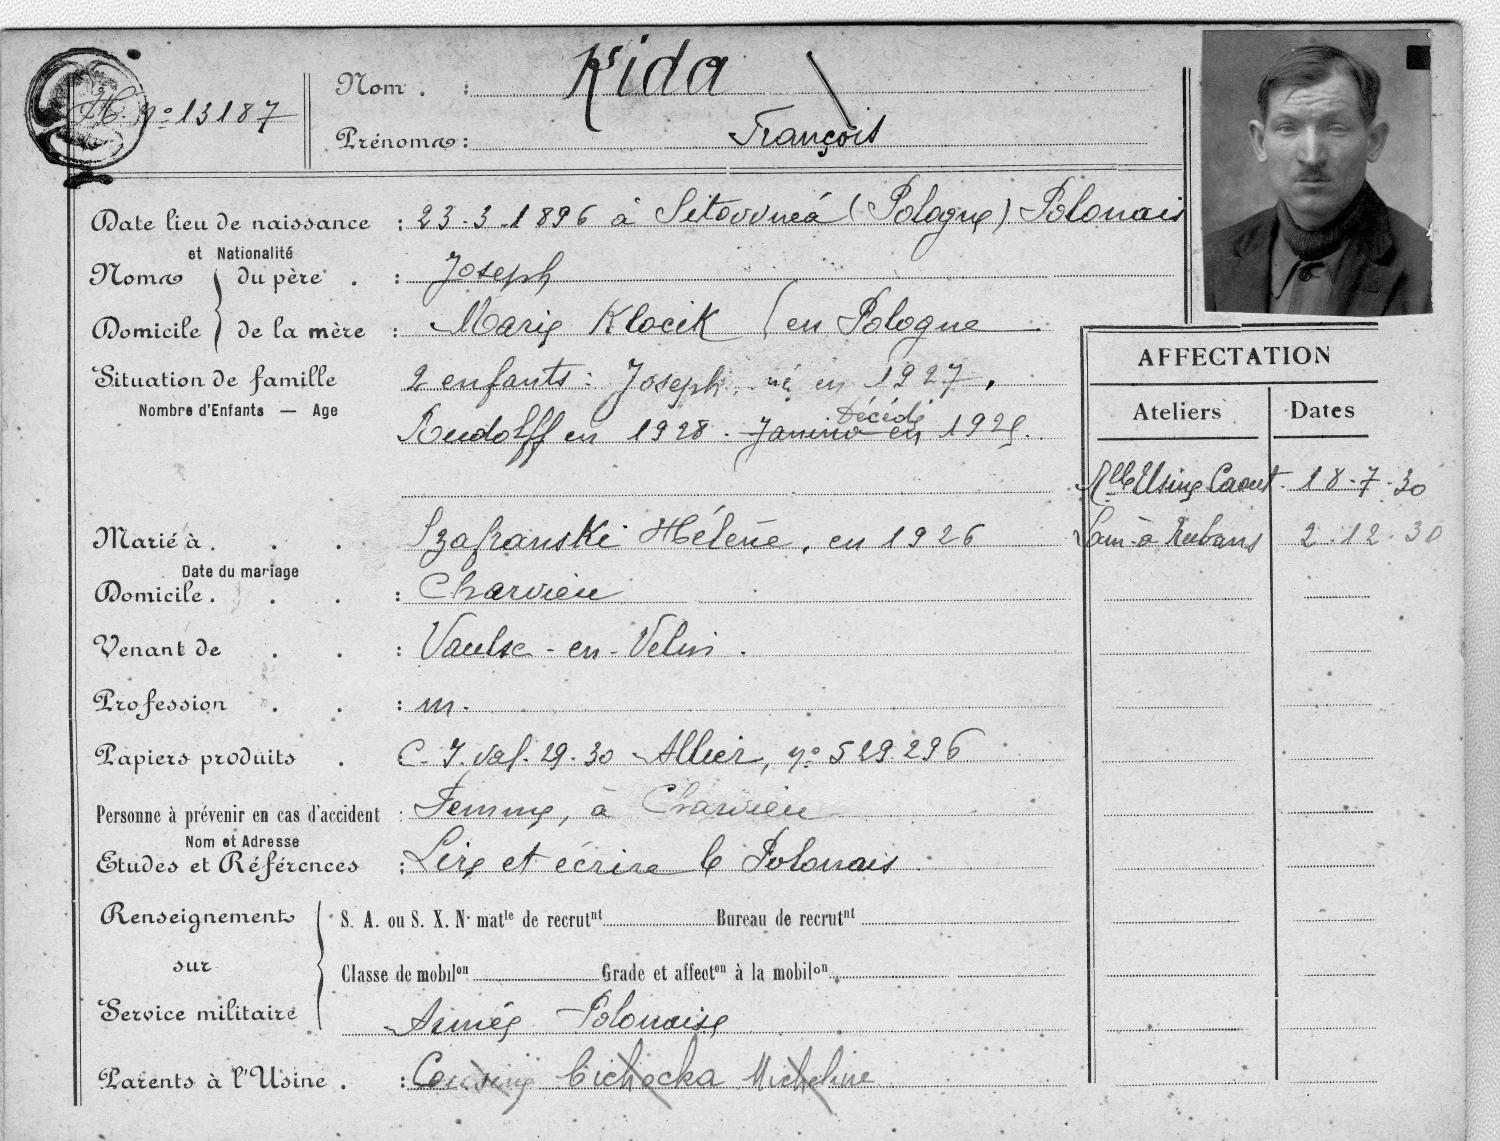 H. nº 13187
Nom . : Kida
Prénoms : François
Date lieu de naissance : 23-3-1896 à Sitowneá (Pologne) Polonais
et Nationalité
Noms du père . : Joseph
Domicile de la mère : Marie Klocik (en Pologne
AFFECTATION
Situation de famille 2 enfants : Joseph né en 1927,
Nombre d'Enfants — Age
Ateliers Dates
Décédé
Rudolff en 1928. Janina en 1925.
Nlle Usine Caout. 18-7-30
Marié à . . . Szafranski Hélène, en 1926
Lam-à Rubans 2.12.30
Date du mariage
Domicile . . . : Charvieu
Venant de . . : Vaulx-en-Velin.
Profession . . : m.
Papiers produits . C.I. val. 29-30 Allier, nº 529.296
Personne à prévenir en cas d'accident : Femme, à Charvieu
Nom et Adresse
Etudes et Références : Lire et écrire le Polonais
Renseignements sur Service militaire
S. A. ou S. X. Nº matle de recrutnt Bureau de recrutnt
Classe de mobilon Grade et affecton à la mobilon
Armée Polonaise
Parents à l'Usine . : Cousine Cichocka Micheline